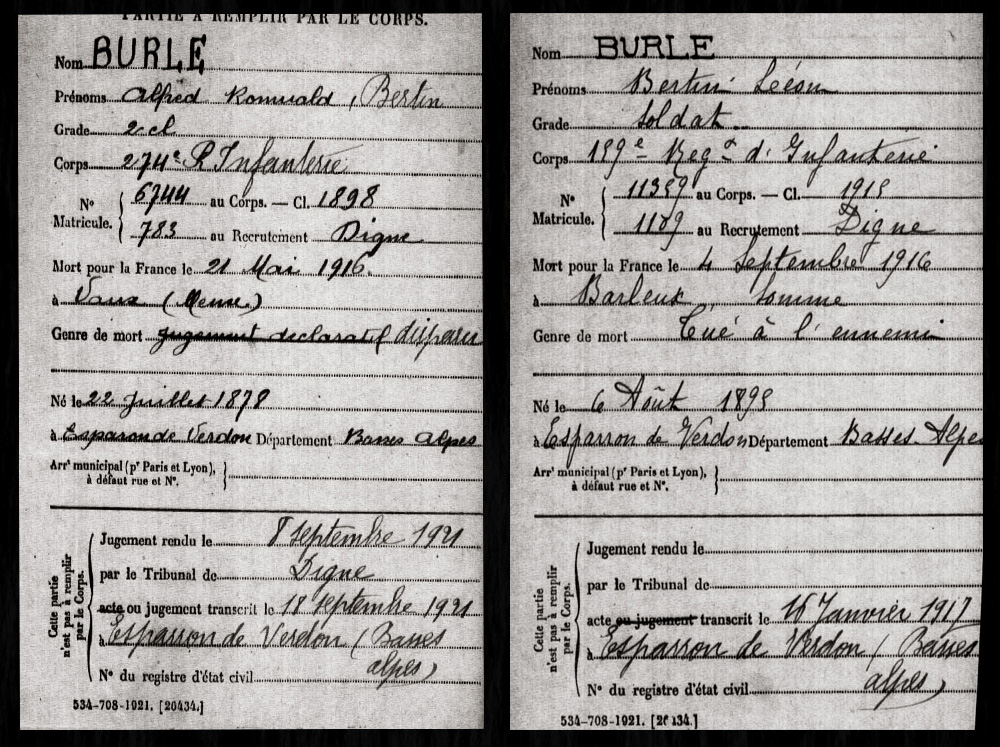 PARTIE À REMPLIR PAR LE CORPS.
Nom BURLE
Prénoms Alfred Romuald, Bertin
Grade 2 cl
Corps 274e R Infanterie
N° Matricule. { 6744 au Corps. — Cl. 1898
783 au Recrutement Digne
Mort pour la France le 21 Mai 1916.
à Vaux (Meuse)
Genre de mort jugement declaratif disparu
Né le 22 Juillet 1878
à Esparron de Verdon Département Basses Alpes
Arrt municipal (pr Paris et Lyon),
à défaut rue et N°.
Cette partie n'est pas à remplir par le Corps.
Jugement rendu le 8 Septembre 1921
par le Tribunal de Digne
acte ou jugement transcrit le 18 Septembre 1921
à Esparron de Verdon (Basses
Alpes)
N° du registre d'état civil
534-708-1921. [20434.]
Nom BURLE
Prénoms Bertin Léon
Grade Soldat
Corps 159e Regt d'Infanterie
N° Matricule. { 11359 au Corps. — Cl. 1915
1189 au Recrutement Digne
Mort pour la France le 4 Septembre 1916
à Barleux, Somme
Genre de mort Tué à l'ennemi
Né le 6 Août 1895
à Esparron de Verdon Département Basses-Alpes
Arrt municipal (pr Paris et Lyon),
à défaut rue et N°.
Cette partie n'est pas à remplir par le Corps.
Jugement rendu le
par le Tribunal de
acte ou jugement transcrit le 16 Janvier 1917
à Esparron de Verdon (Basses
Alpes)
N° du registre d'état civil
534-708-1921. [20434.]